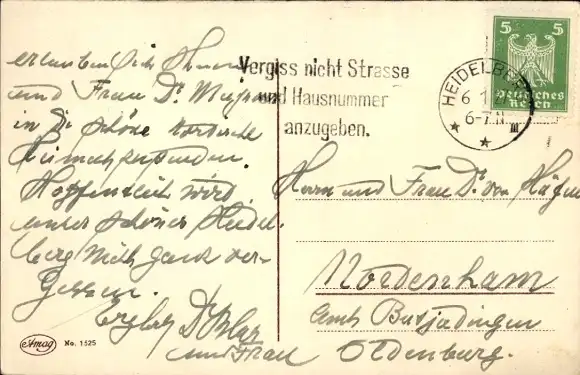 erlauben sich Ihnen
und Frau Dr.
in die schöne nordische
Heimat zu senden.
Hoffentlich wird
unser schönes Heidel-
berg nicht ganz ver-
gessen.
Dr.
und Frau
Amag No. 1525
Vergiss nicht Strasse
und Hausnummer
anzugeben.
HEIDELBERG
6 1 27
6-7 N
5 5
Deutsches
Reich
Herrn und Frau Dr. von Hägen
Nordenham
Amt Butjadingen
Oldenburg.